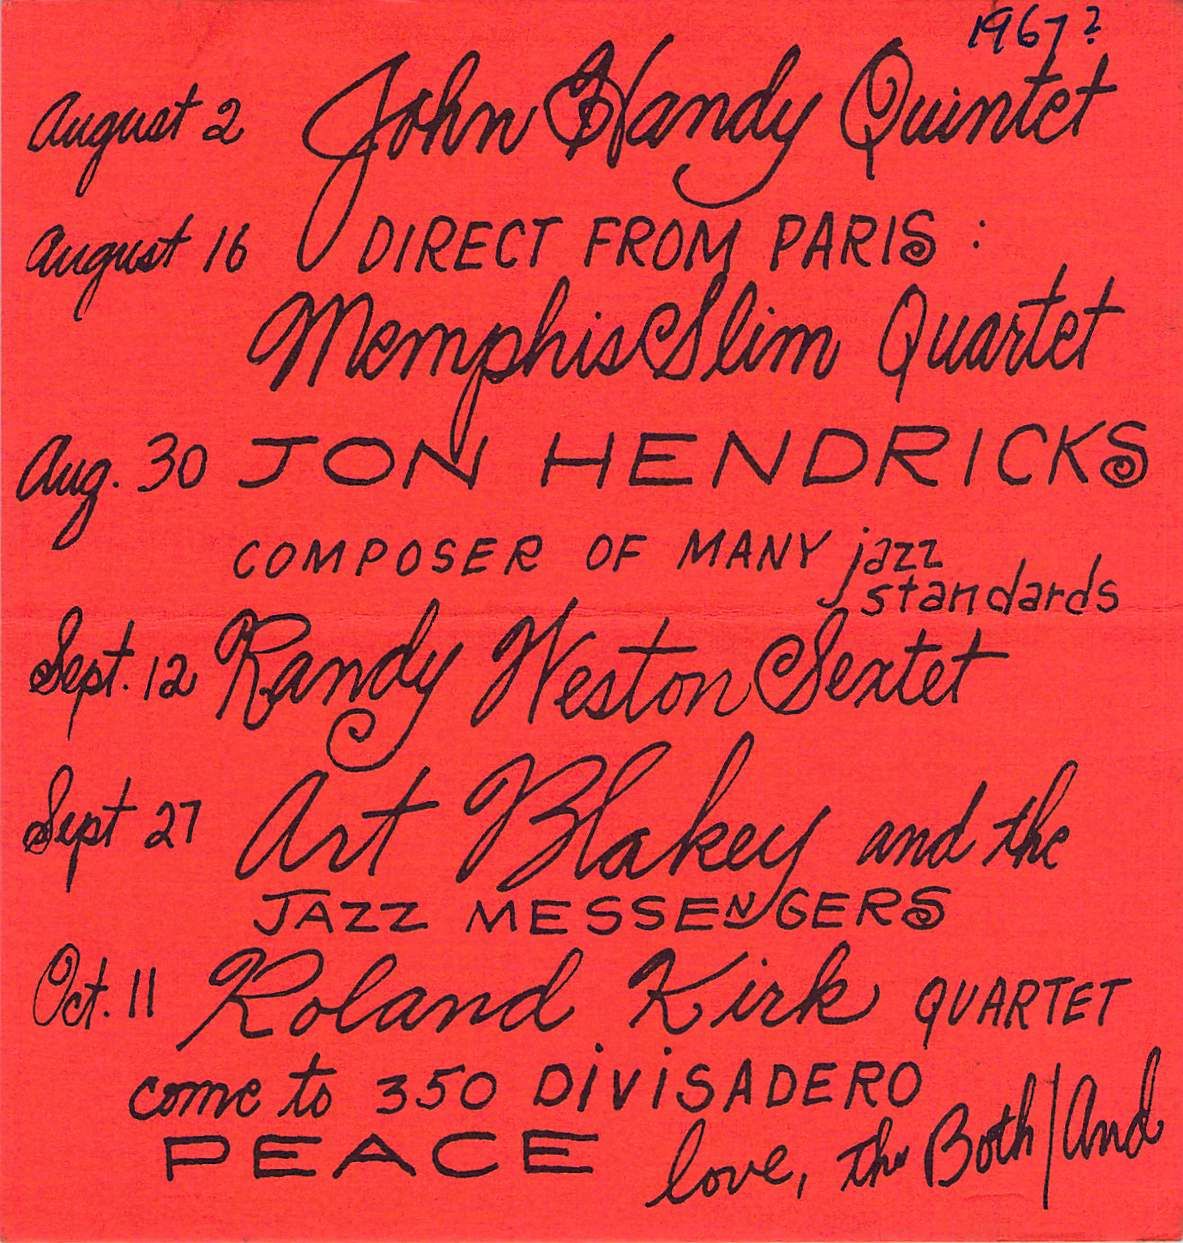 1967?
August 2 John Handy Quintet
August 16 DIRECT FROM PARIS:
Memphis Slim Quartet
Aug. 30 JON HENDRICKS
COMPOSER OF MANY jazz
standards
Sept. 12 Randy Weston Sextet
Sept 27 Art Blakey and the
JAZZ MESSENGERS
Oct. 11 Roland Kirk QUARTET
come to 350 DiViSADERO
PEACE love, the Both/And